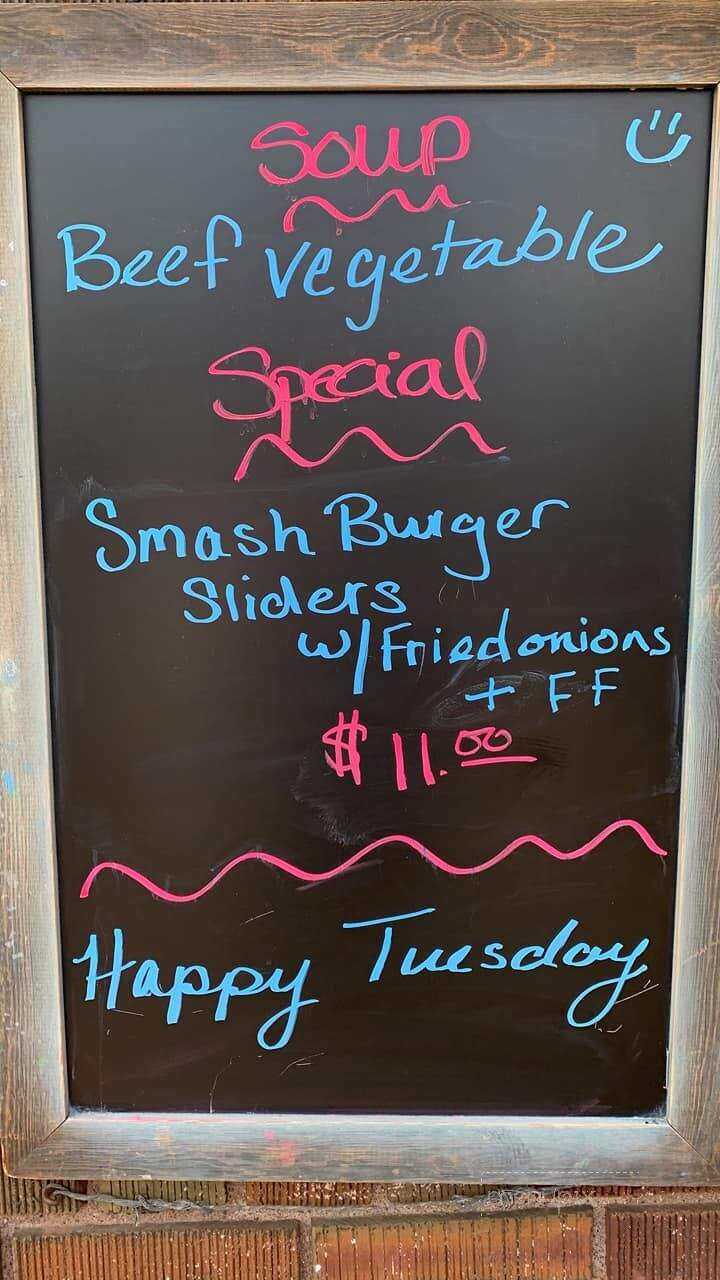 Soup
Beef vegetable
Special
Smash Burger
Sliders
w/Fried onions
+ FF
$11.00
Happy Tuesday